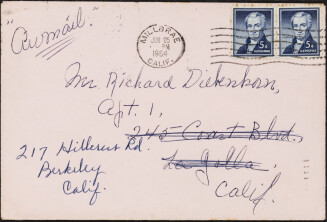 Airmail.
MILLBRAE
JUN
PM
1964
CALIF.
5¢
5¢
Mr. Richard Diebenkorn,
Apt. 1,
245 Coast Blvd.,
La Jolla,
Calif.
217 Hillcrest Rd.
Berkeley
Calif.